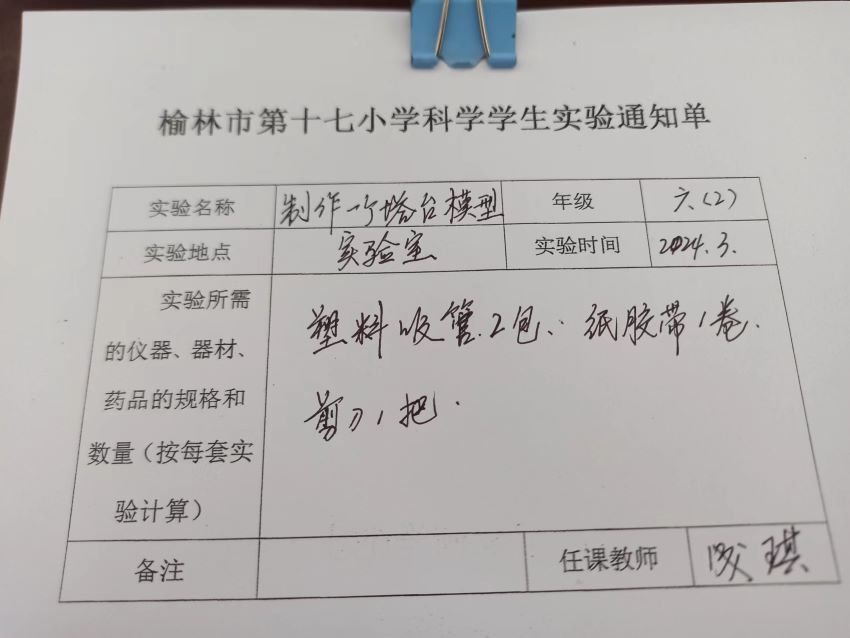 榆林市第十七小学科学学生实验通知单
实验名称 制作一个塔台模型 年级 六(2)
实验地点 实验室 实验时间 2024.3.
实验所需
的仪器、器材、
药品的规格和
数量(按每套实
验计算)
塑料吸管.2包、纸胶带1卷.
剪刀1把.
备注 任课教师 琪